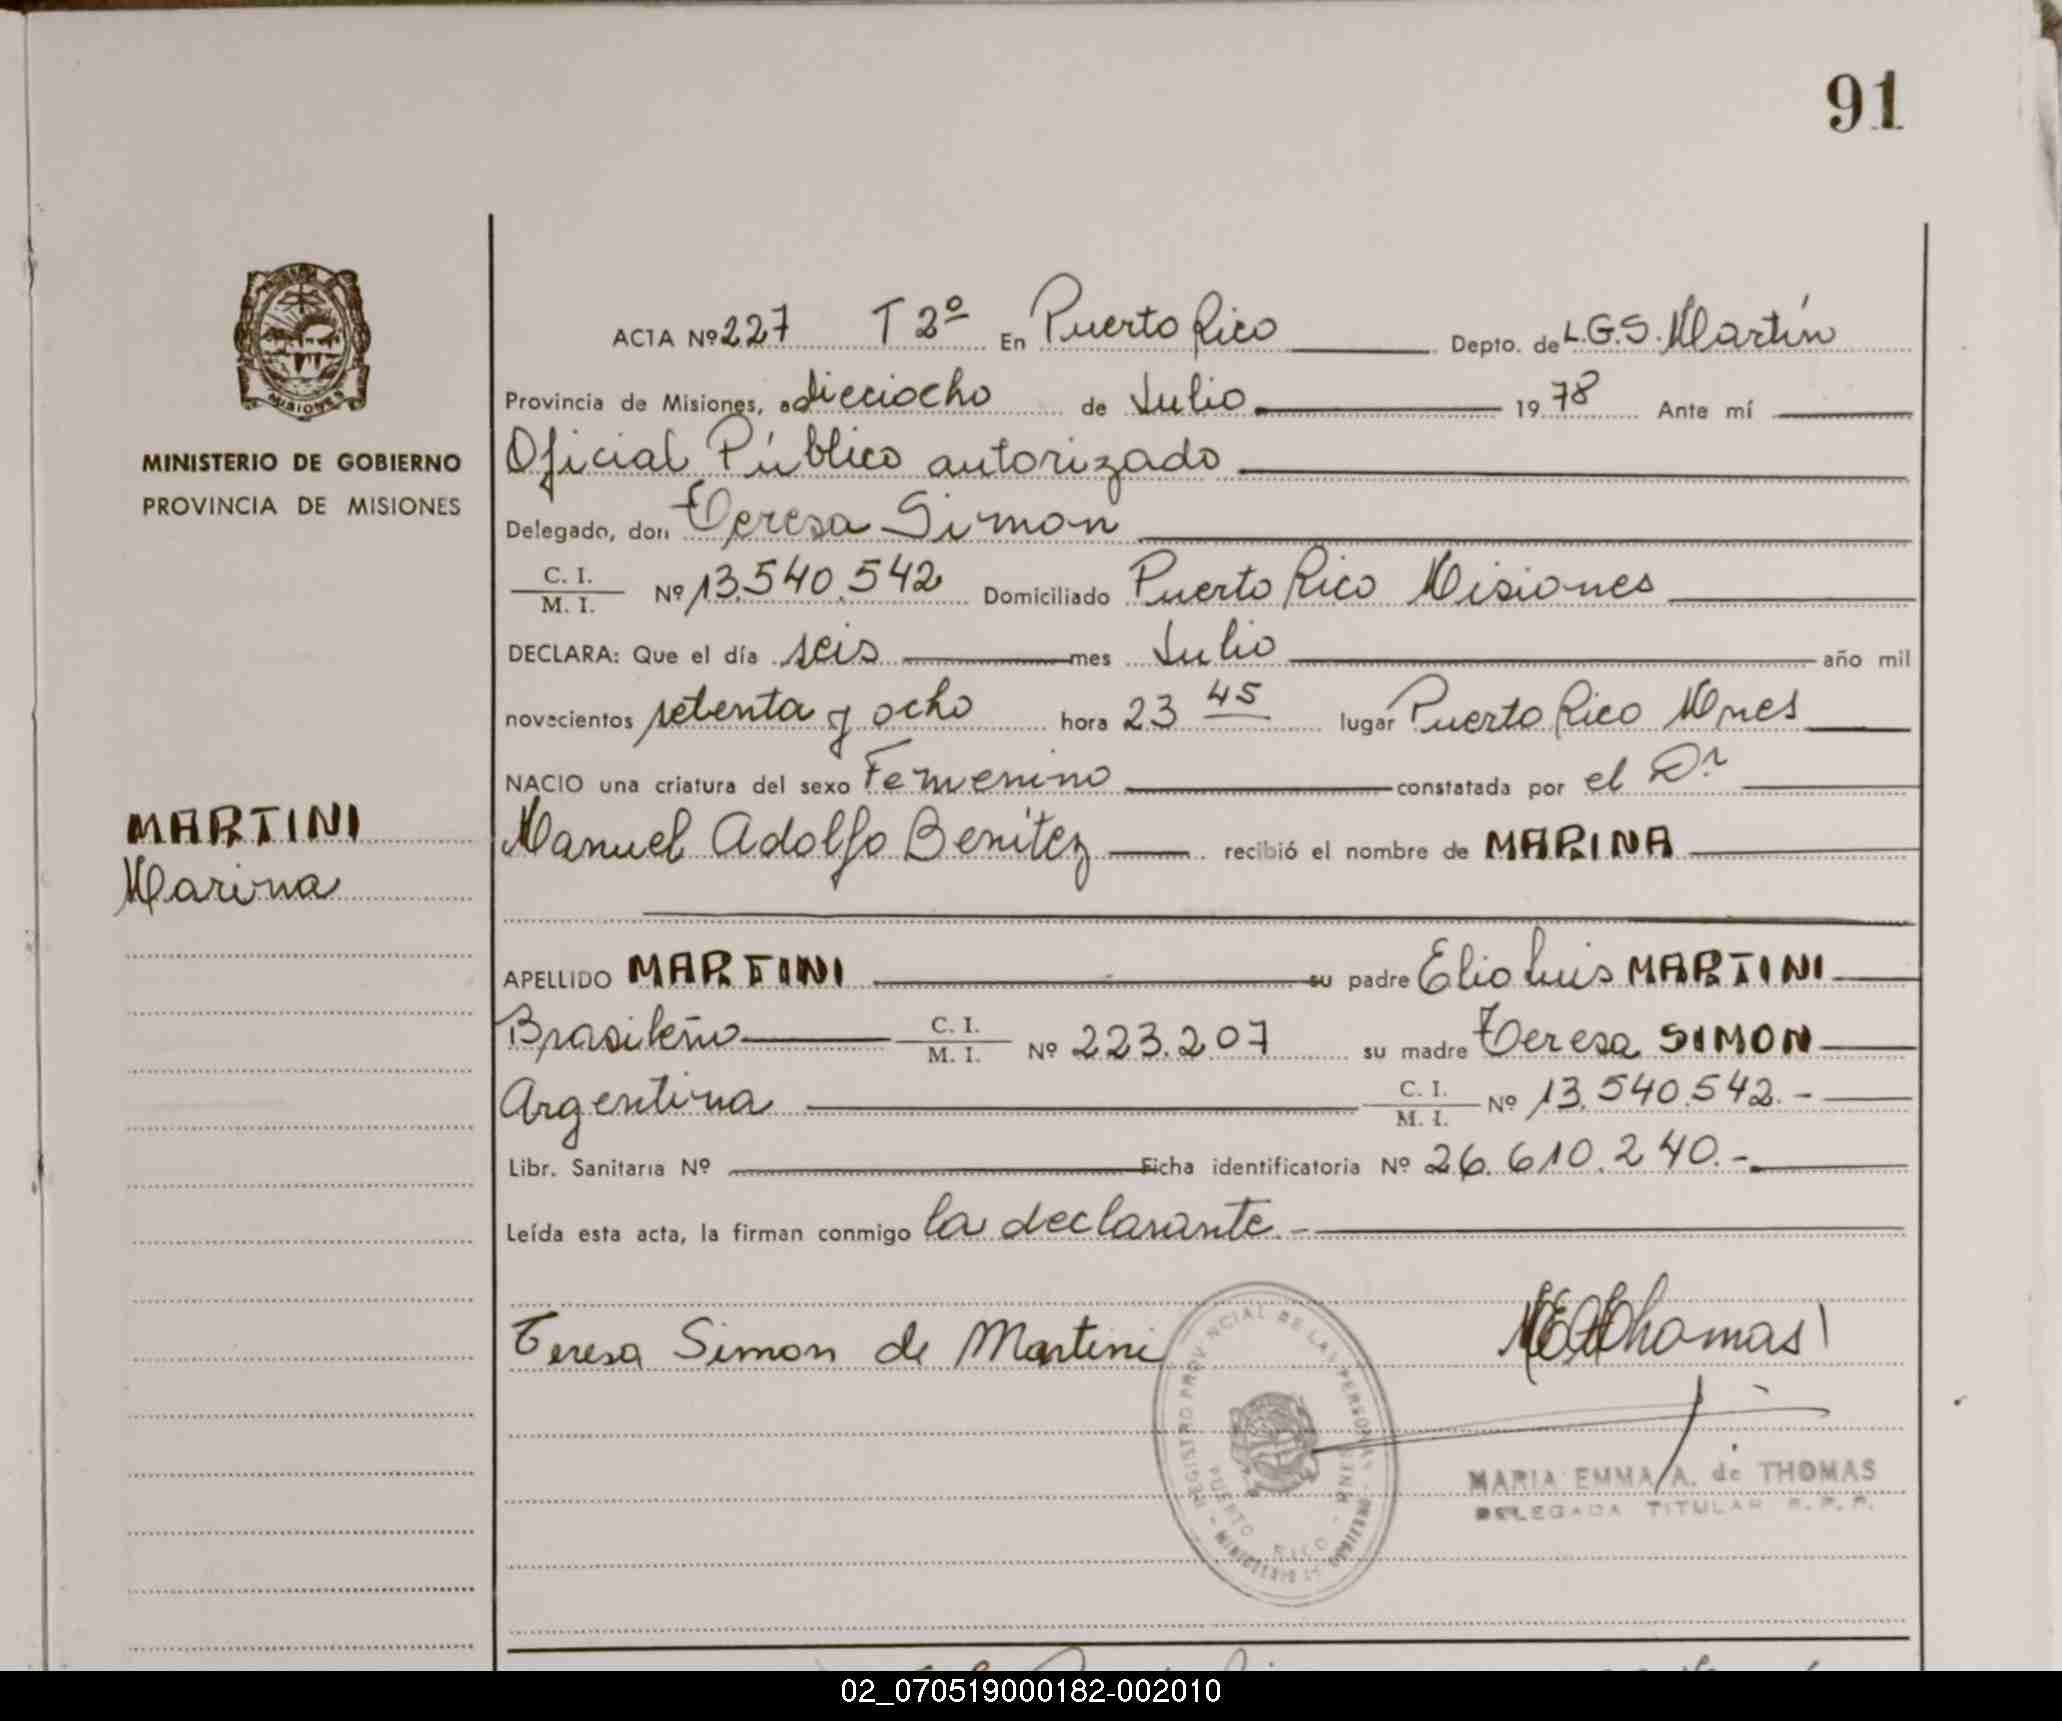 91
ACTA Nº 227 T 2º En Puerto Rico Depto. de L.G.S. Martín
Provincia de Misiones, a dieciocho de Julio 19 78 Ante mí
Oficial Público autorizado
Delegado, don Teresa Simon
C. I.
M. I. Nº 13.540.542 Domiciliado Puerto Rico Misiones
DECLARA: Que el día seis mes Julio año mil
novecientos setenta y ocho hora 23 45 lugar Puerto Rico Mnes
NACIO una criatura del sexo Femenino constatada por el Dr
Manuel Adolfo Benítez recibió el nombre de MARINA
APELLIDO MARTINI su padre Elio Luis MARTINI
Brasileño C. I.
M. I. Nº 223.207 su madre Teresa SIMON
Argentina C. I.
M. I. Nº 13.540.542.-
Libr. Sanitaria Nº Ficha identificatoria Nº 26.610.240.-
Leída esta acta, la firman conmigo la declarante.-
Teresa Simon de Martini
Thomas
REGISTRO PROVINCIAL DE LAS PERSONAS - MINISTERIO DE GOBIERNO -
PUERTO RICO - MNES
MARIA EMMA A. de THOMAS
DELEGADA TITULAR R. P. P.
MISIONES
MINISTERIO DE GOBIERNO
PROVINCIA DE MISIONES
MARTINI
Marina
02_070519000182-002010